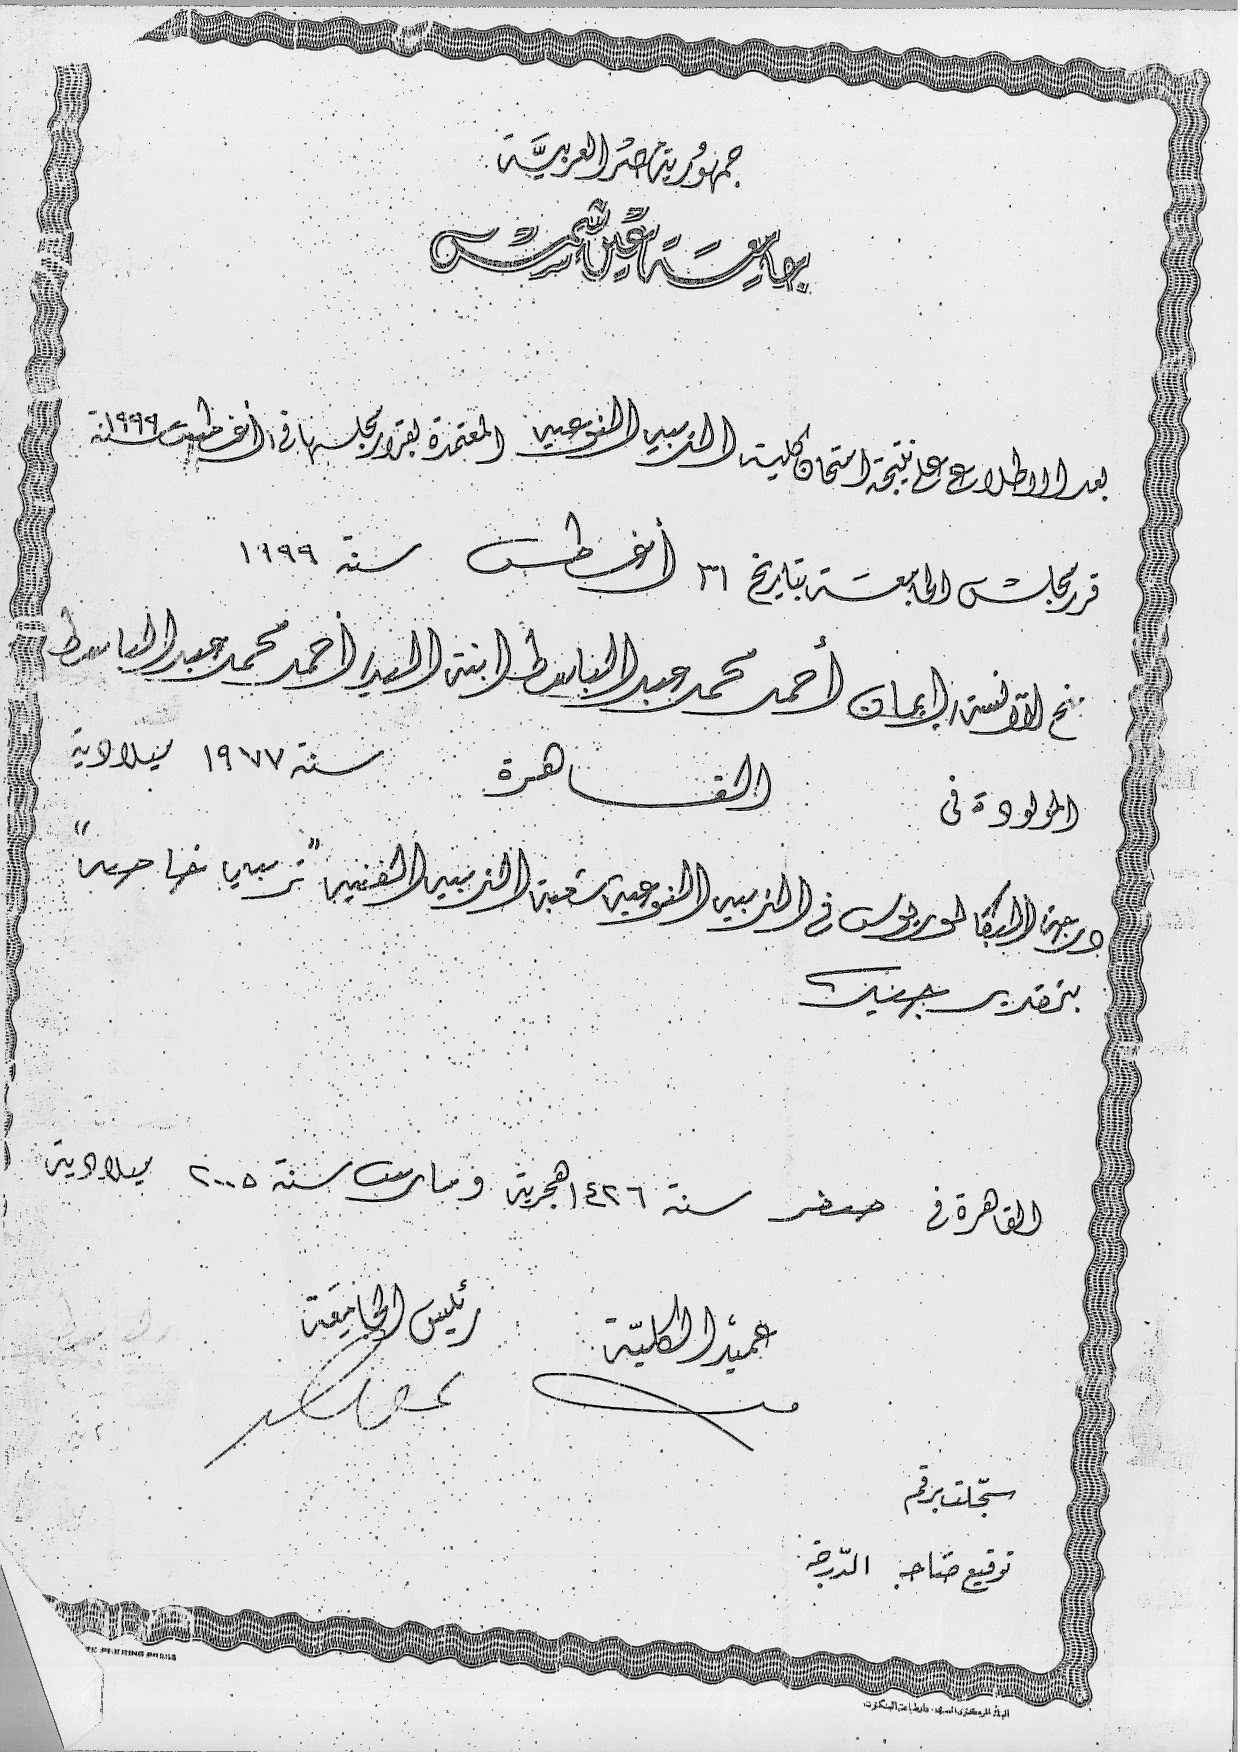 جمهورية مصر العربية
جامعة عين شمس
بعد الاطلاع على نتيجة امتحان كلية التربية النوعية المعتمدة بقرار مجلسها في أغسطس سنة ١٩٩٩
قرر مجلس الجامعة بتاريخ ٣١ أغسطس سنة ١٩٩٩
منح الآنسة/ إيمان أحمد محمد عبد الباسط ابنة السيد/ أحمد محمد عبد الباسط
المولودة في القاهرة سنة ١٩٧٧ ميلادية
درجة البكالوريوس في التربية النوعية شعبة التربية الفنية "تربية خاصة"
بتقدير جيد
القاهرة في صفر سنة ١٤٢٦ هجرية ومارس سنة ٢٠٠٥ ميلادية
عميد الكلية رئيس الجامعة
سجلت برقم
توقيع صاحب الدرجة
PRINTING PRESS
البنك المركزي المصري - دار طباعة البنكنوت